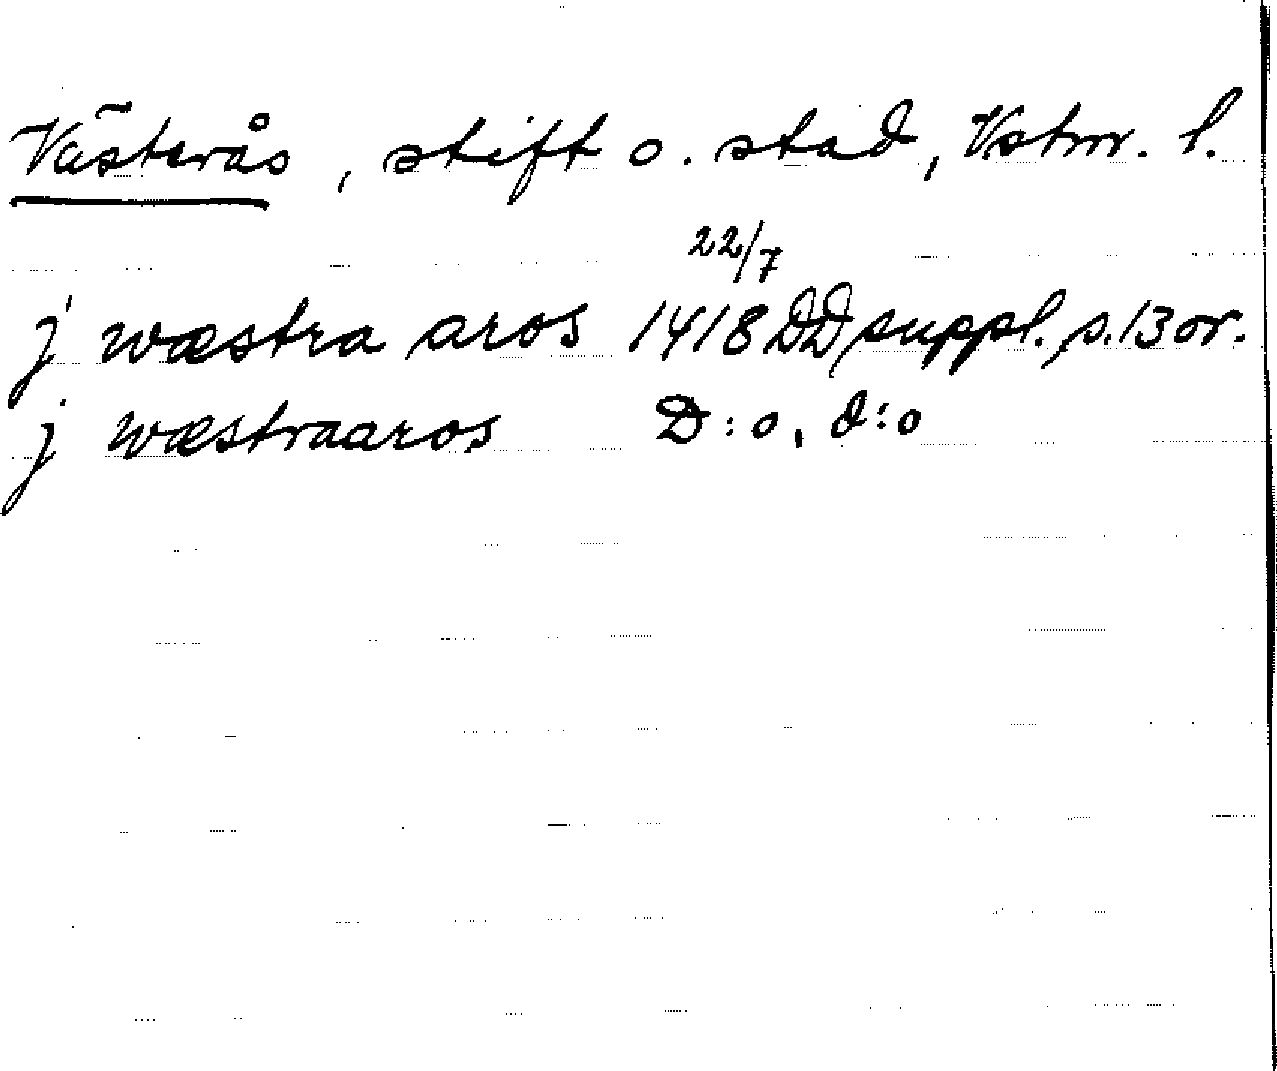 Västerås, stift o. stad, Vstm. l.
22/7
j wæstra aros 1418 DD suppl. s. 13 or.
j wæstraaros D:o, d:o